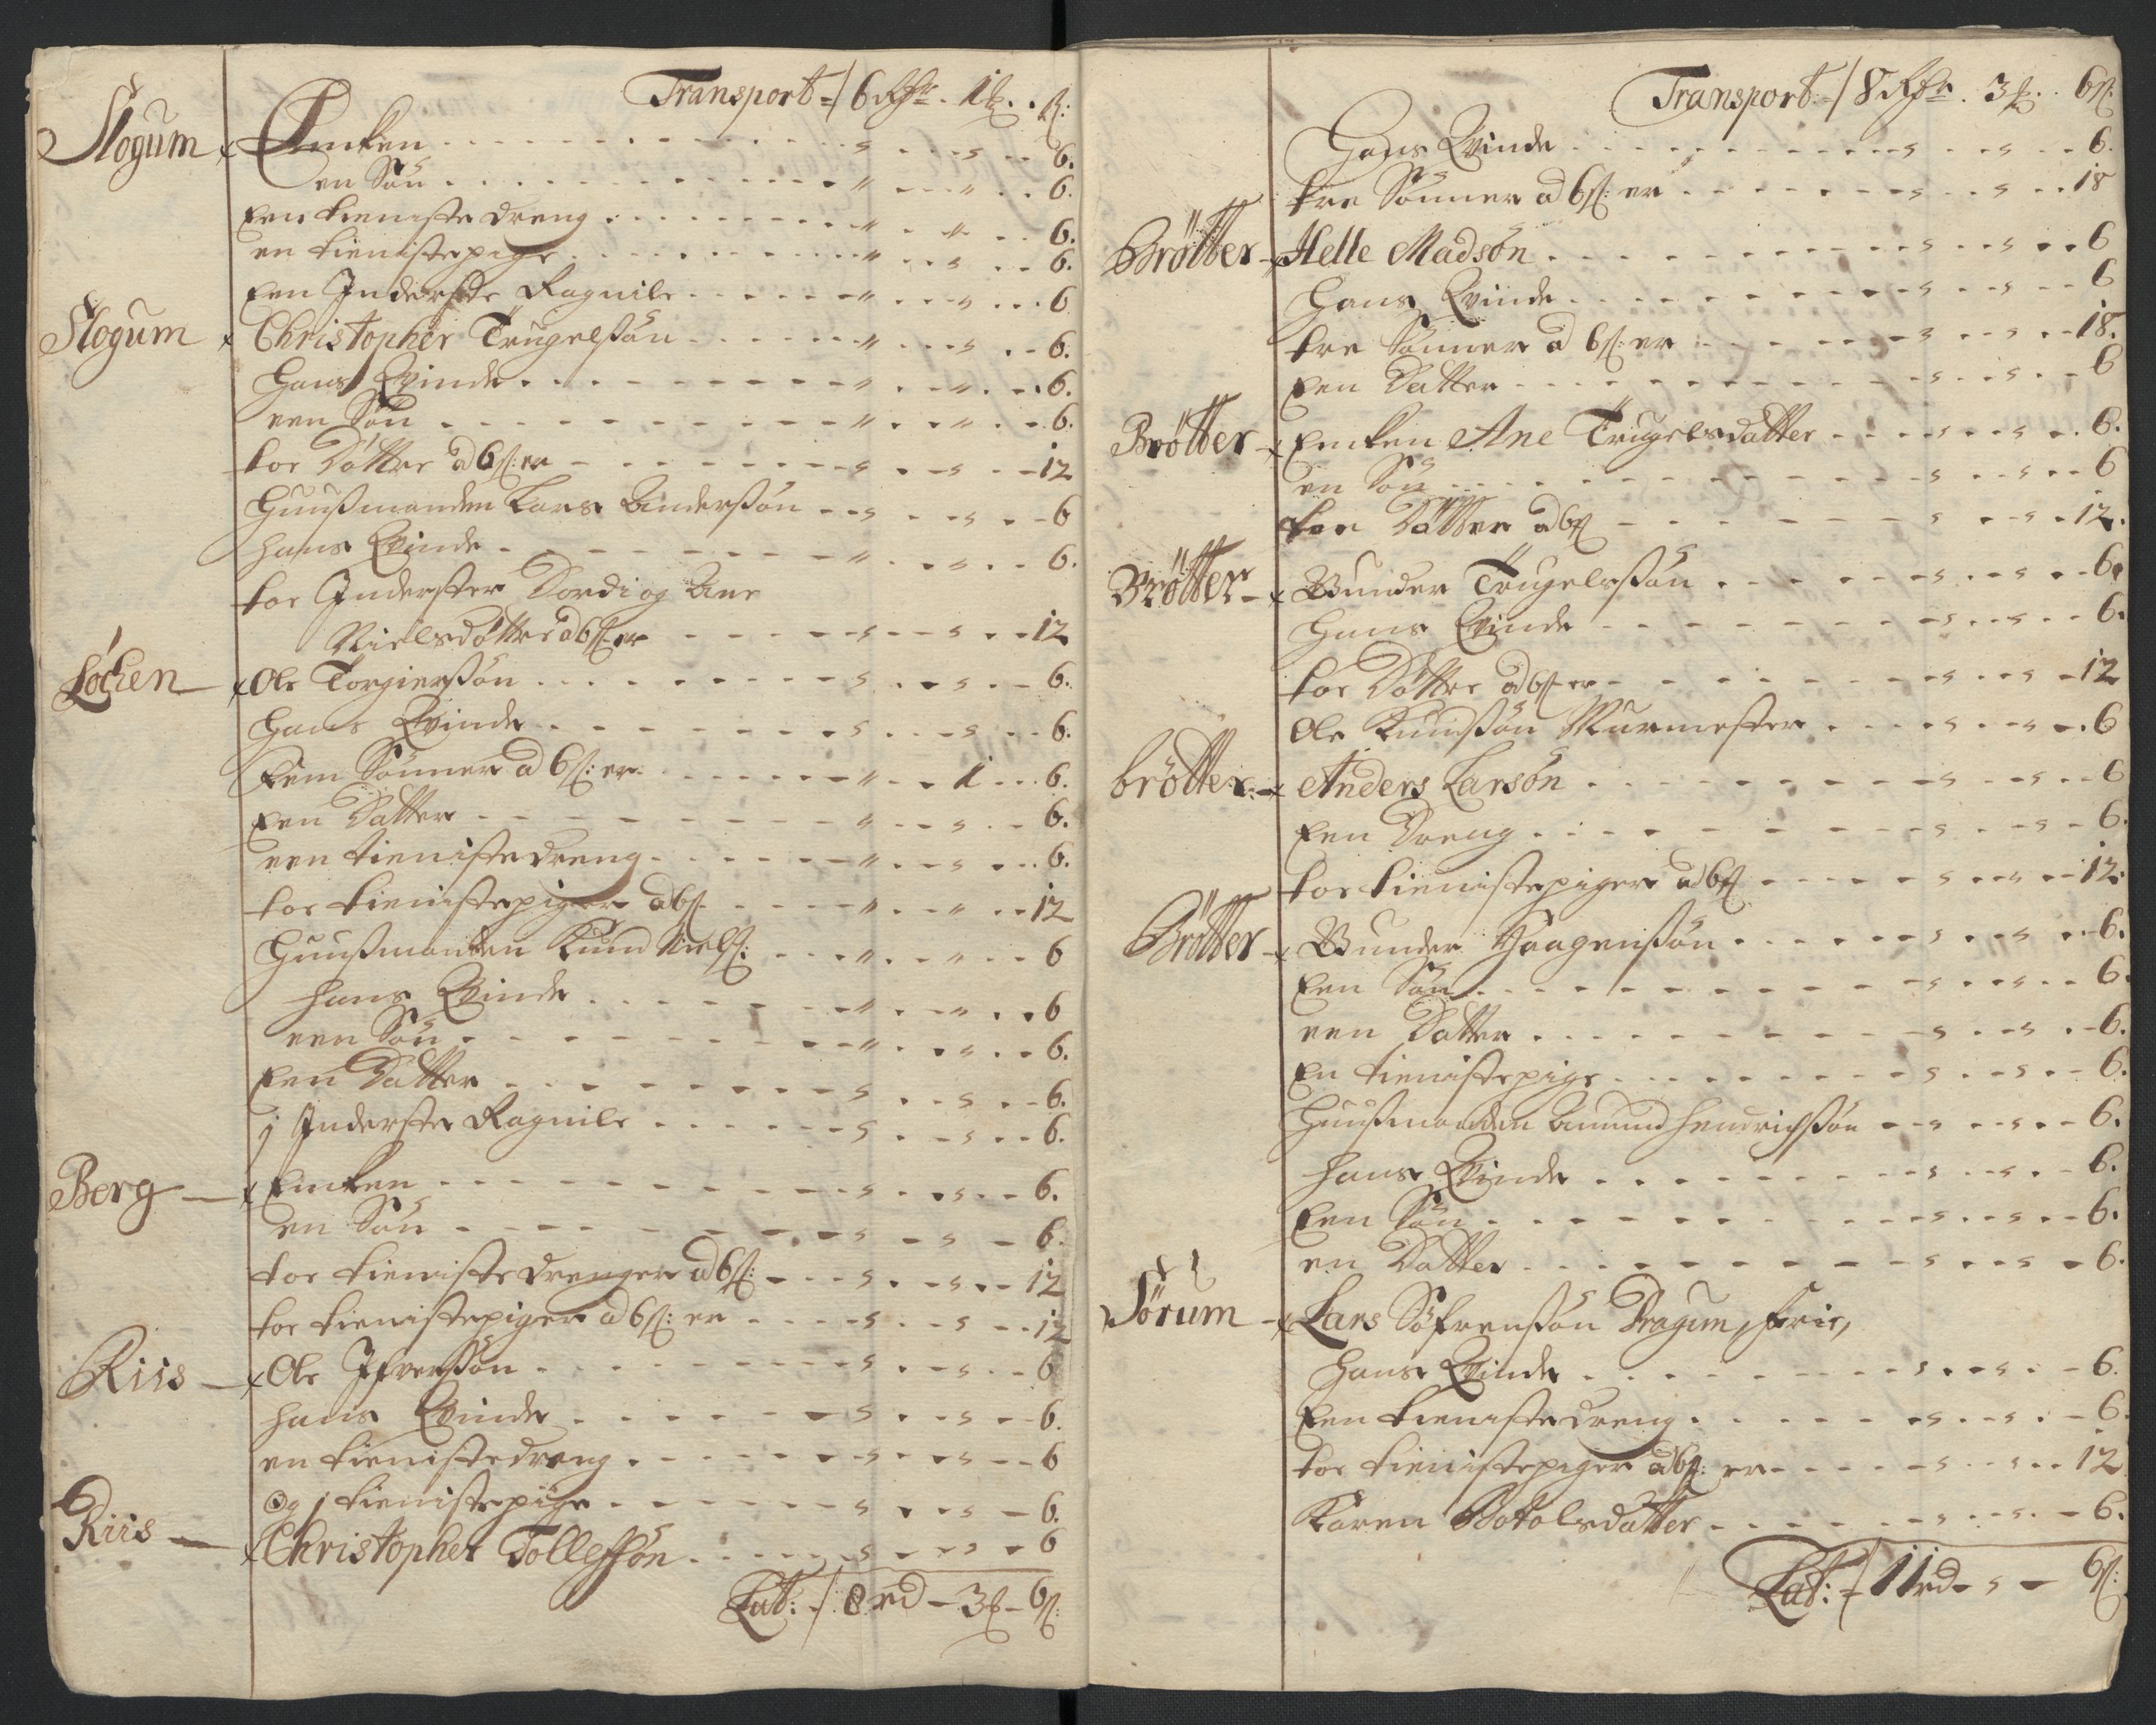 Transport / 6 Rdr. 1 . . ß:
Slogum Encken . . . 6.
en Søn . . . 6.
Een tieniste dreng . . . 6.
en tienistepige . . . 6.
Een Inderste Ragnile . . . 6
Slogum Christopher Trugelßøn . . . 6.
Hans Qvinde . . . 6.
een Søn . . . 6.
toe Døttre ad 6ß: er . . . 12
Huusmanden Lars Anderßøn . . . 6
hans Qvinde . . . 6.
toe Inderster Dordi og Ane
Nielsdøttre ad 6ß er . . . 12
Løchen Ole Torgierßøn . . . 6.
Hans Qvinde . . . 6.
Fem Sønner ad 6ß: er . . . 1 . . 6.
Een Datter . . . 6.
een tienistedreng . . . 6.
toe tienistepiger ad 6ß . . . 12
Huusmanden Knud Nielß: . . . 6
hans Qvinde . . . 6
een Søn . . . 6.
Een Datter . . . 6.
j Inderste Ragnile . . . 6.
Berg Encken . . . 6.
en Søn . . . 6.
toe tieniste drenger ad 6ß: . . . 12
toe tienistepiger ad 6ß: er . . . 12
Riis Ole Ifverßøn . . . 6
hans Qvinde . . . 6.
en tienistedreng . . . 6
Og j tienistepige . . . 6.
Riis Christopher Tollefsøn . . . 6
Lat: / 8 rd - 3 - 6ß:
Transport / 8 Rdr. 3 . . 6ß:
Hans Qvinde . . . 6.
tre Sønner ad 6ß: er . . . 18
Brøtter Helle Madsøn . . . 6
Hans Qvinde . . . 6
tre Sønner ad 6ß: er . . . 18.
Een Datter . . . 6
Brøtter Encken Ane Trugelsdatter . . . 6.
en Søn . . . 6
toe Døttre ad 6ß . . . 12.
Brøtter Gunder Trugelsßøn . . . 6.
Hans Qvinde . . . 6.
toe Døttre ad 6ß er . . . 12
Ole Knudßøn Murmester . . . 6
brøtter Anders Larsøn . . . 6
Een Dreng . . . 6.
toe tienistepiger ad 6ß . . . 12.
Brøtter Gunder Haagenßøn . . . 6.
Een Søn . . . 6.
een Datter . . . 6.
En tienistepige . . . 6.
Huusmanden Amund Hendrichßøn . . . 6.
hans Qvinde . . . 6.
Een Søn . . . 6.
en Datter . . . 6.
Sørum Lars Søfrenßøn Dragun, frie,
Hans Qvinde . . . 6.
Een tienistedreng . . . 6.
toe tienistepiger ad 6ß: er . . . 12
Karen Botolsdatter . . . 6.
Lat: / 11 rd - - 6ß: